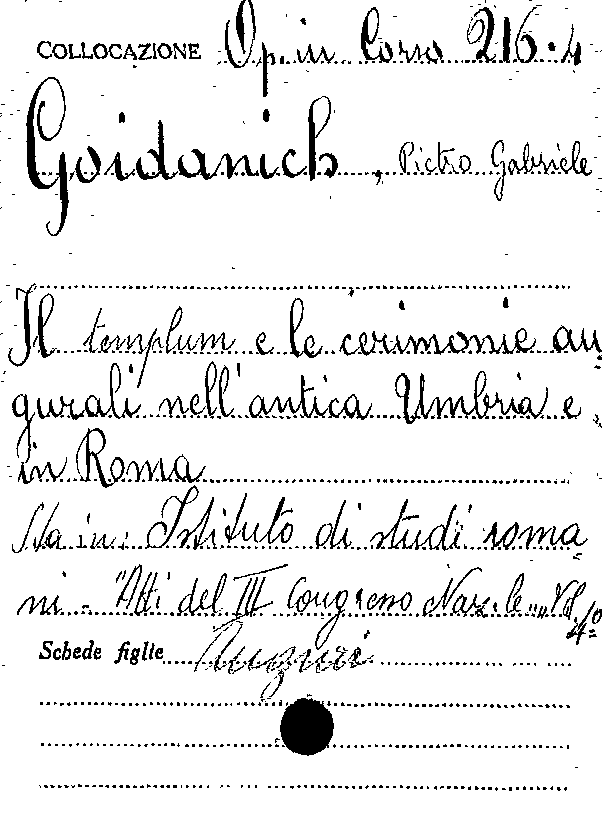 COLLOCAZIONE Op. in Corso 216.4
Goidanich, Pietro Gabriele
Il templum e le cerimonie au=
gurali nell'antica Umbria e
in Roma
Sta in: Istituto di studi roma=
ni - "Atti del III Congresso Naz.le", Vol. 4º
Schede figlie Auguri